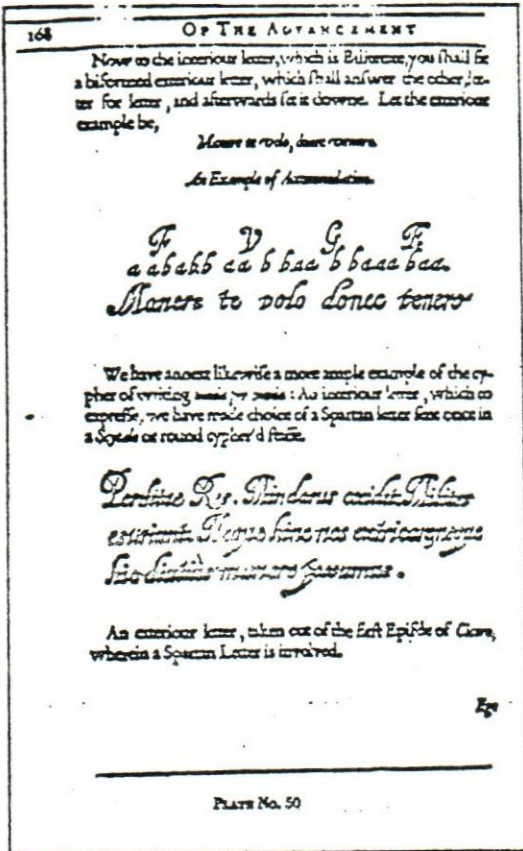 168 OF THE ADVANCEMENT
Now to the interiour letter, which is Biliterate, you shall fit
a biformed exteriour letter, which shall answer the other, let-
ter for letter, and afterwards set it downe. Let the exteriour
example be,
Manere te volo, donec venero.
An Example of Accommodation.
F V G E
a ababb aa b bаа b baaa baa.
Manere te volo donec venero
We have annext likewise a more ample example of the cy-
pher of writing omnia per omnia: An interiour letter, which to
expresse, we have made choice of a Spartan letter sent once in
a Scytale or round cypher'd staffe.
Perditae Res. Mindarus cecidit. Milites
esuriunt. Neque hinc nos extricare, neque
hic diutiùs manere possumus.
An exteriour letter, taken out of the first Epistle of Cicero,
wherein a Spartan Letter is involved.
Ego
PLATE NO. 50